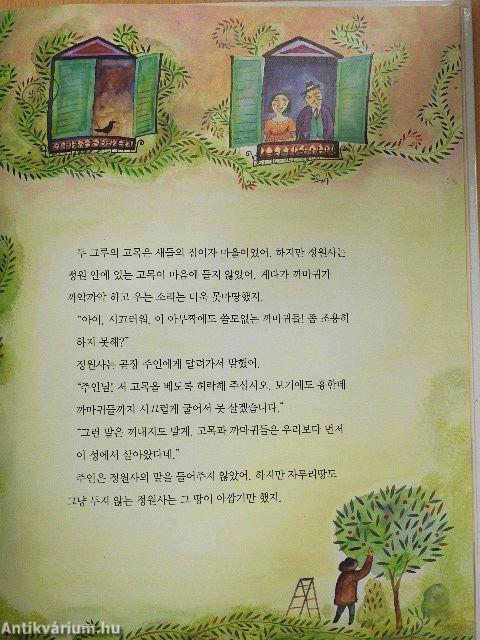 두 그루의 고목은 새들의 집이자 마을이었어. 하지만 정원사는
정원 안에 있는 고목이 마음에 들지 않았어. 게다가 까마귀가
까악까악 하고 우는 소리는 더욱 못마땅했지.
“아이, 시끄러워. 이 아무짝에도 쓸모없는 까마귀들! 좀 조용히
하지 못해?”
정원사는 곧장 주인에게 달려가서 말했어.
“주인님! 저 고목을 베도록 허락해 주십시오. 보기에도 흉한데
까마귀들까지 시끄럽게 굴어서 못 살겠습니다.”
“그런 말은 꺼내지도 말게. 고목과 까마귀들은 우리보다 먼저
이 성에서 살아왔다네.”
주인은 정원사의 말을 들어주지 않았어. 하지만 자투리땅도
그냥 두지 않는 정원사는 그 땅이 아깝기만 했지.
Antikvárium.hu